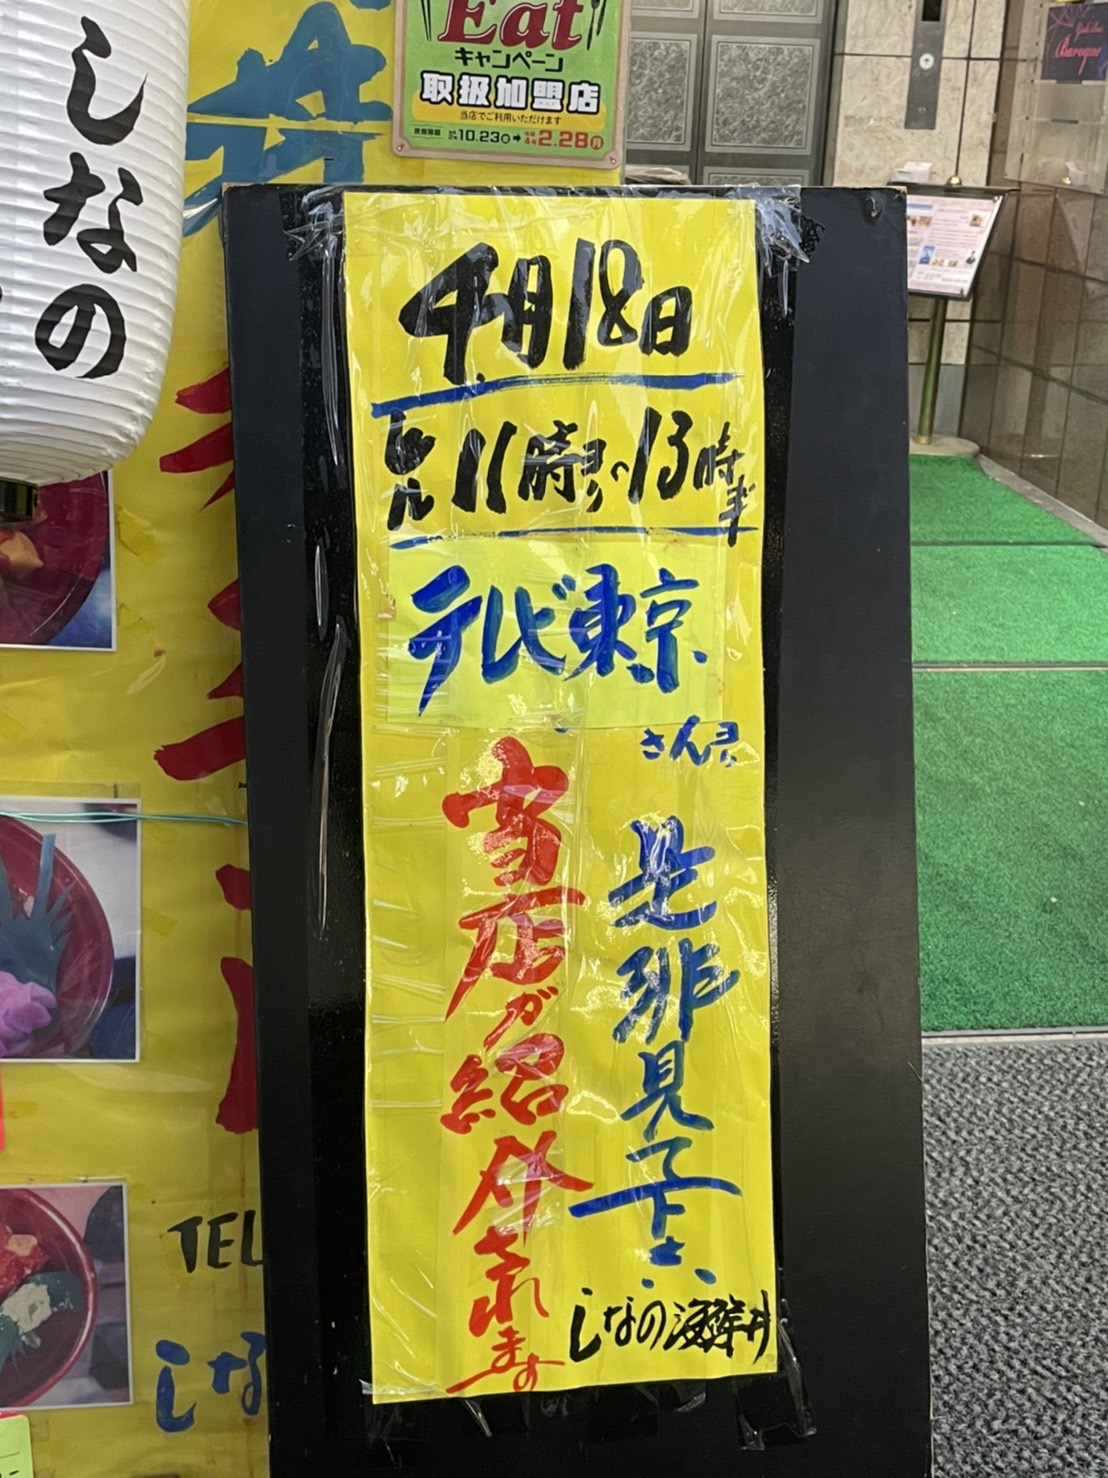 Eat
キャンペーン
取扱加盟店
当店でご利用いただけます
10.23 → 2.28 月
しなの
丼
4月18日
ヒル 11時より13時まで
テレビ東京
さんより
是非見て下さい
当店が紹介されます
しなの海鮮丼
TEL
しな
Baroque